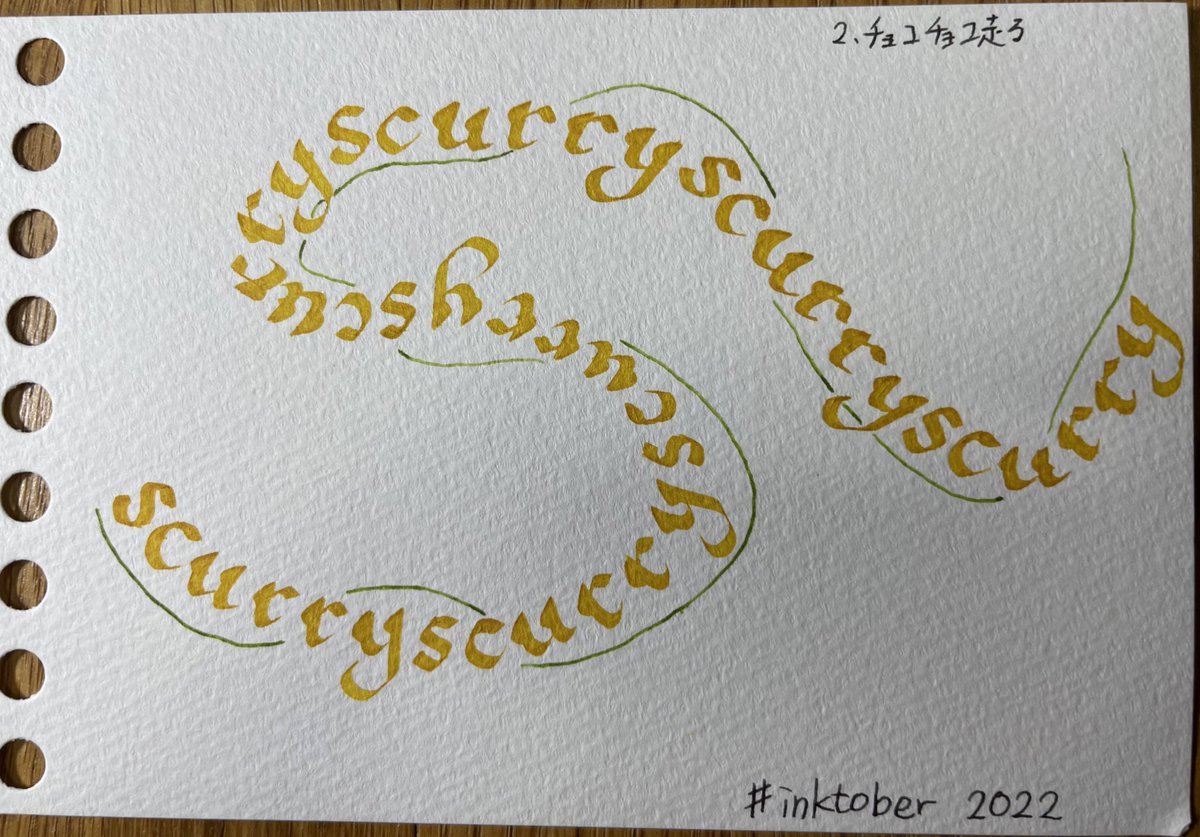 2、チョコチョコ走る
scurryscurryscurryscurryscurryscurryscurry
#inktober 2022